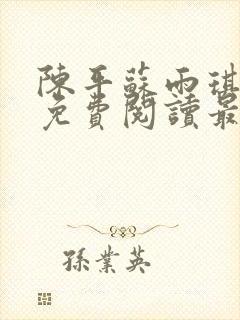 陳平蘇雨琪
免費閱讀最
孫業英